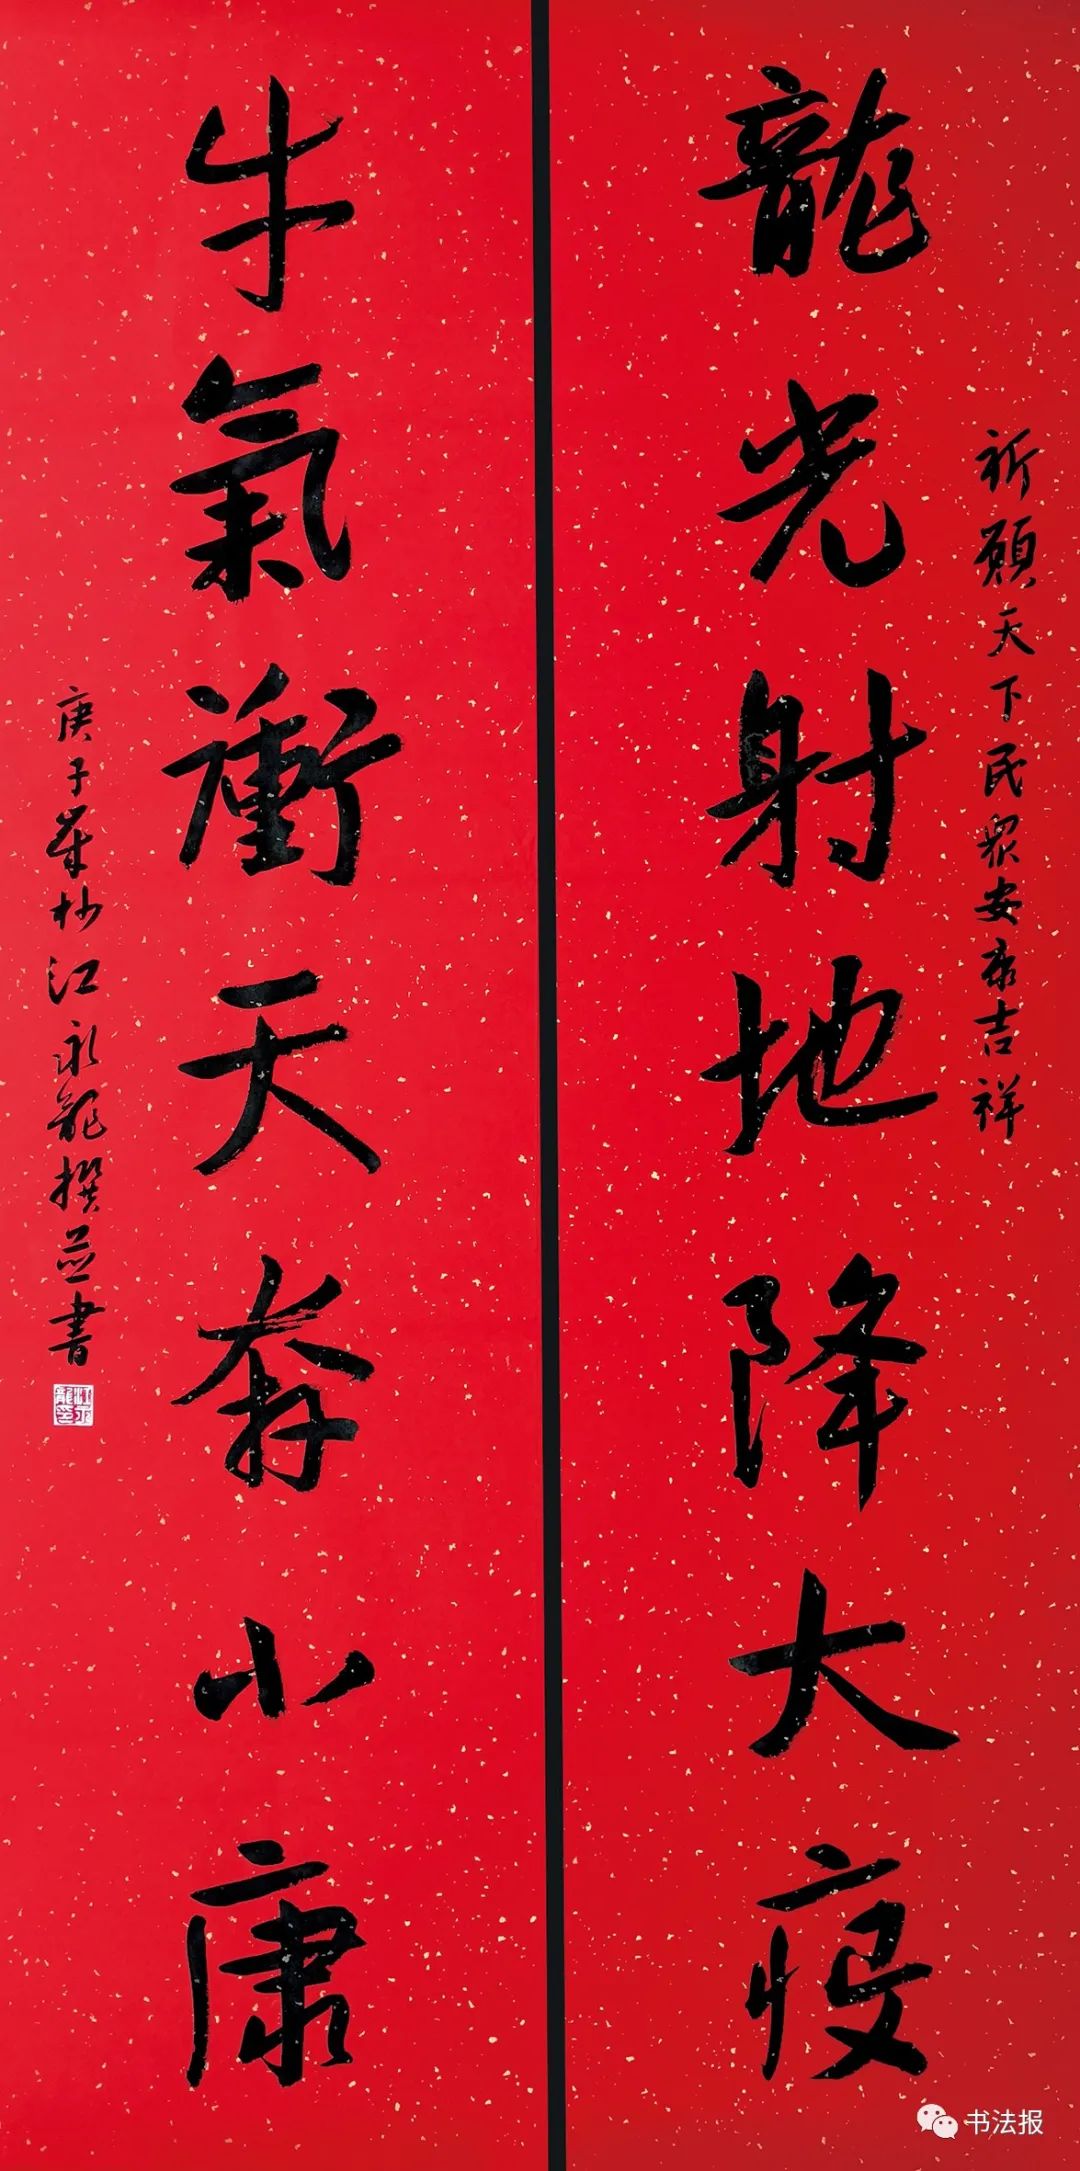 祈願天下民眾安康吉祥
龍光射地降大疫
牛氣衝天奔小康
庚子歲杪江永龍撰並書
江永龍印
书法报